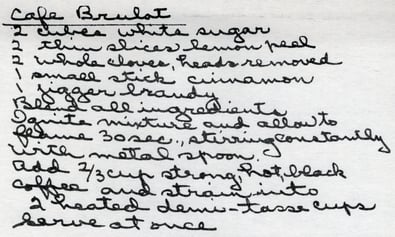 Cafe Brulot
2 cubes white sugar
2 thin slices lemon peel
2 whole cloves, heads removed
1 small stick cinnamon
1 jigger brandy
Blend all ingredients
Ignite mixture and allow to
flame 30 sec., stirring constantly
with metal spoon.
Add 2/3 cup strong, hot, black
coffee and strain into
2 heated demi-tasse cups
Serve at once